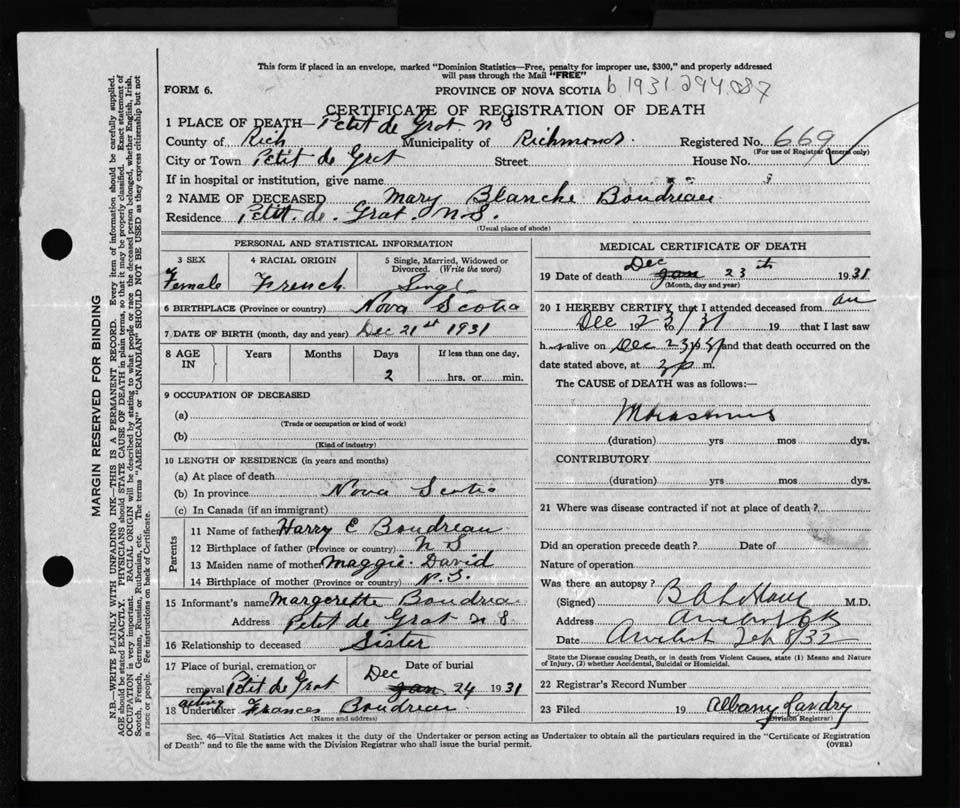 This form if placed in an envelope, marked "Dominion Statistics—Free, penalty for improper use, $300," and properly addressed
will pass through the Mail "FREE"
FORM 6.
PROVINCE OF NOVA SCOTIA
b 1931 294 087
CERTIFICATE OF REGISTRATION OF DEATH
1 PLACE OF DEATH— Petit de Grat N S
County of Rich Municipality of Richmond. Registered No. 669
(For use of Registrar General only)
City or Town Petit de Grat Street House No.
If in hospital or institution, give name
2 NAME OF DECEASED Mary Blanche Boudreau
Residence Petit de Grat N.S.
(Usual place of abode)
PERSONAL AND STATISTICAL INFORMATION
3 SEX 4 RACIAL ORIGIN 5 Single, Married, Widowed or
Divorced. (Write the word)
Female French Singl
6 BIRTHPLACE (Province or country) Nova Scotia
7 DATE OF BIRTH (month, day and year) Dec 21st 1931
8 AGE IN Years Months Days If less than one day,
2 hrs. or min.
9 OCCUPATION OF DECEASED
(a)
(Trade or occupation or kind of work)
(b)
(Kind of industry)
10 LENGTH OF RESIDENCE (in years and months)
(a) At place of death
(b) In province Nova Scotia
(c) In Canada (if an immigrant)
Parents
11 Name of father Harry E Boudreau
12 Birthplace of father (Province or country) N S
13 Maiden name of mother Maggie David
14 Birthplace of mother (Province or country) N.S.
15 Informant's name Margerette Boudreau
Address Petit de Grat N S
16 Relationship to deceased Sister
17 Place of burial, cremation or Date of burial
removal Petit de Grat Dec Jan 24 1931
acting
18 Undertaker Frances Boudreau
(Name and address)
MEDICAL CERTIFICATE OF DEATH
Dec
19 Date of death Jan 23th 1931
(Month, day and year)
20 I HEREBY CERTIFY that I attended deceased from
Dec 23/31 19 that I last saw
h alive on Dec 23/31 and that death occurred on the
date stated above, at m.
The CAUSE of DEATH was as follows:—
Marasmus
(duration) yrs mos dys.
CONTRIBUTORY
(duration) yrs mos dys.
21 Where was disease contracted if not at place of death?
Did an operation precede death? Date of
Nature of operation
Was there an autopsy?
(Signed) M.D.
Address Arichat
Date Arichat Feb 8/32
State the Disease causing Death, or in death from Violent Causes, state (1) Means and Nature
of Injury, (2) whether Accidental, Suicidal or Homicidal.
22 Registrar's Record Number
23 Filed 19 Albany Landry
Division Registrar)
Sec. 46—Vital Statistics Act makes it the duty of the Undertaker or person acting as Undertaker to obtain all the particulars required in the "Certificate of Registration
of Death" and to file the same with the Division Registrar who shall issue the burial permit.
(OVER)
MARGIN RESERVED FOR BINDING
N.B.—WRITE PLAINLY WITH UNFADING INK—THIS IS A PERMANENT RECORD. Every item of information should be carefully supplied.
AGE should be stated EXACTLY. PHYSICIANS should STATE CAUSE OF DEATH in plain terms, so that it may be properly classified. Exact statement of
OCCUPATION is very important. RACIAL ORIGIN will be described by stating to what people or race the deceased person belonged, whether English, Irish,
Scotch, French, German, Russian, Ruthenian, etc. The terms "AMERICAN" or "CANADIAN" SHOULD NOT BE USED as they express citizenship but not
a race or people. See instructions on back of Certificate.